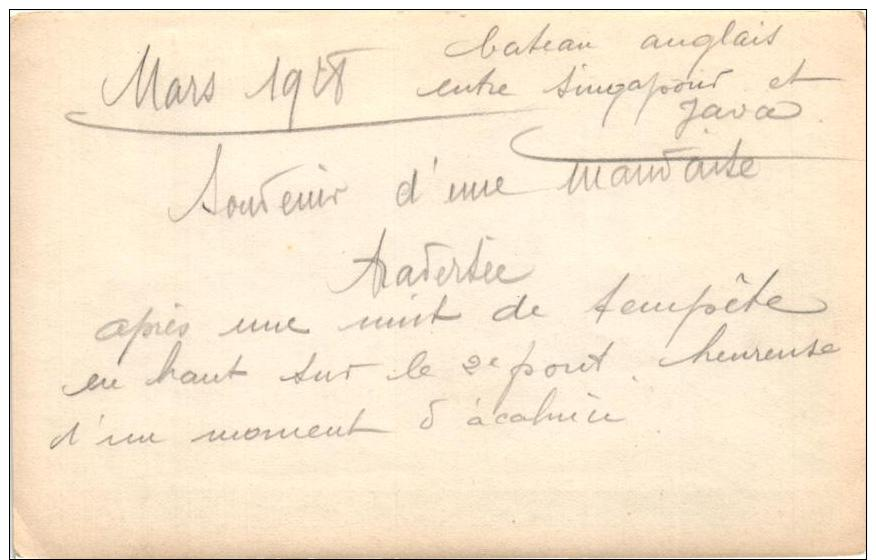 Mars 1918
bateau anglais
entre Singapour et
Java.
Souvenir d'une mauvaise
traversée
après une nuit de tempête
en haut sur le 2e pont. heureuse
d'un moment d'acalmie